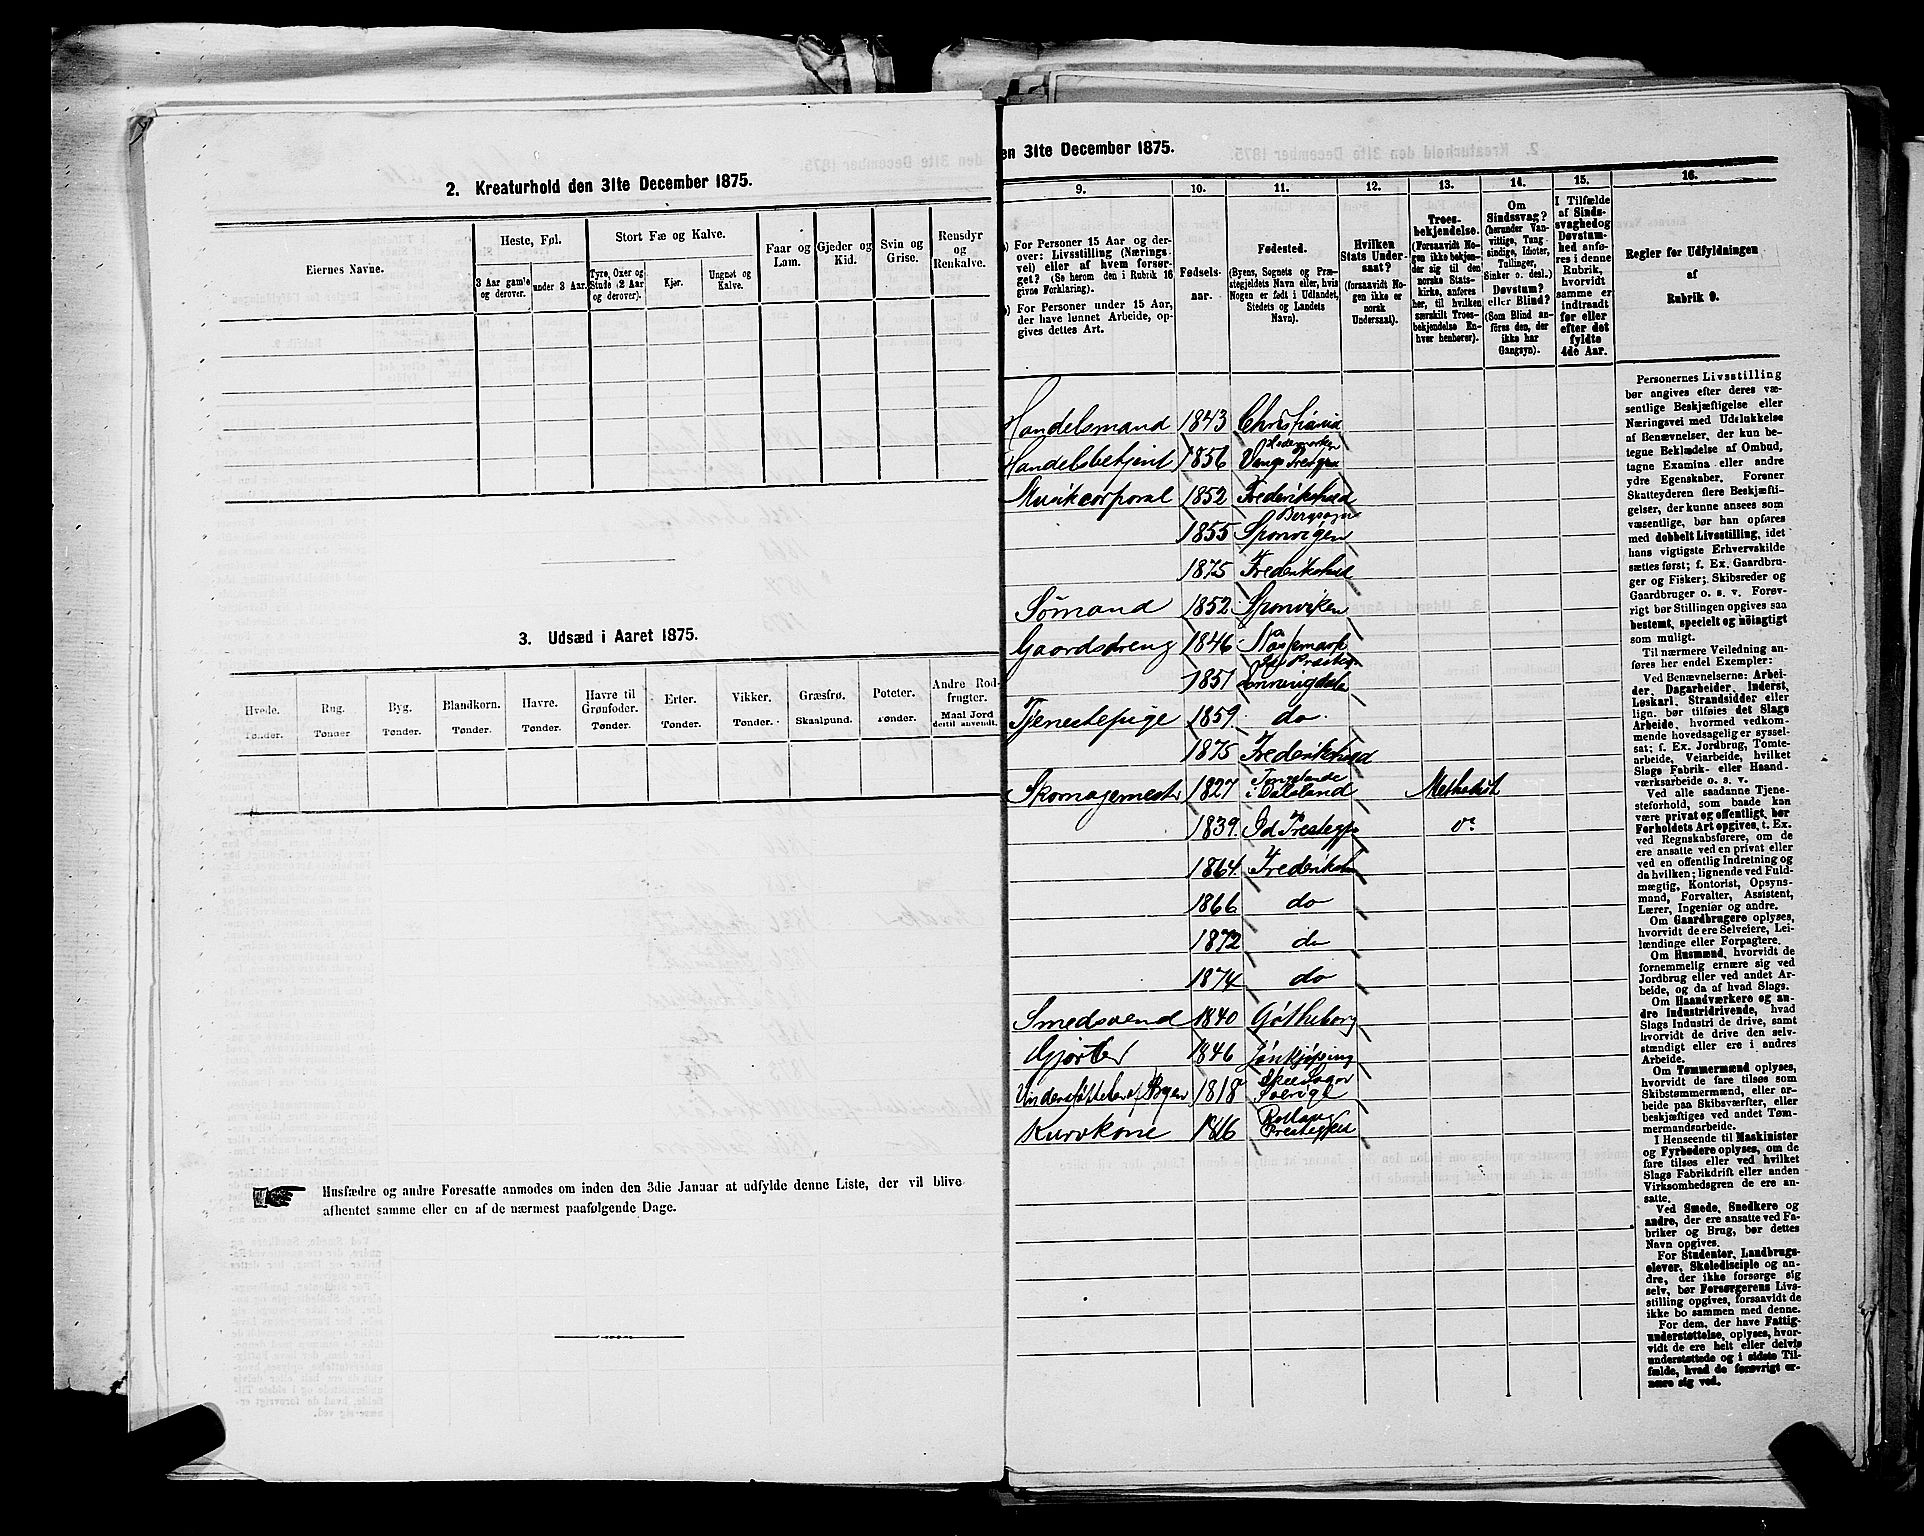 2. Kreaturhold den 31te December 1875.
Eiernes Navne.
Heste, Føl.
Stort Fæ og Kalve.
Faar og Lam.
Gjeder og Kid.
Svin og Grise.
Rensdyr og Renkalve.
3 Aar gamle og derover.
under 3 Aar.
Tyre, Oxer og Stude (2 Aar og derover).
Kjør.
Ungnøt og Kalve.
3. Udsæd i Aaret 1875.
Hvede.
Rug.
Byg.
Blandkorn.
Havre.
Havre til Grønfoder.
Erter.
Vikker.
Græsfrø.
Poteter.
Andre Rodfrugter.
Tønder.
Tønder
Tønder.
Tønder.
Tønder.
Tønder.
Tønder.
Tønder.
Skaalpund.
Tønder.
Maal Jord dertil anvendt.
Husfædre og andre Foresatte anmodes om inden den 3die Januar at udfylde denne Liste, der vil blive
afhentet samme eller en af de nærmest paafølgende Dage.
en 31te December 1875.
9.
10.
11.
12.
13.
14.
15.
16.
) For Personer 15 Aar og derover: Livsstilling (Næringsvei) eller af hvem forsørget? (Se herom den i Rubrik 16 givne Forklaring).
) For Personer under 15 Aar, der have lønnet Arbeide, opgives dettes Art.
Fødselsaar.
Fødested.
(Byens, Sognets og Præstegjeldets Navn eller, hvis Nogen er født i Udlandet, Stedets og Landets Navn).
Hvilken Stats Undersaat?
(forsaavidt Nogen ikke er norsk Undersaat).
Troesbekjendelse.
(Forsaavidt Nogen ikke bekjender sig til den norske Statskirke, anføres her, til hvilken særskilt Troesbekjendelse Enhver henhører).
Om Sindssvag?
(herunder Vanvittige, Tungsindige, Idioter, Tullinger, Sinker o. desl.)
Døvstum?
eller Blind?
(Som Blind anføres den, der ikke har Gangsyn).
I Tilfælde af Sindssvaghed og Døvstumhed anføres i denne Rubrik, hvorvidt samme er indtraadt før eller efter det fyldte 4de Aar.
Regler for Udfyldningen
af
Rubrik 9.
Handelsmand 1843 Christiania
Handelsbetjent 1856 Hedemarken Vangs Prestgj
Musikcorporal 1852 Frederikshald
1855 Sponvigen Bergsogn
1875 Frederikshald
Sømand 1852 Sponviken
Gaardsdreng 1846
1851
Tjenestepige 1859. do.
1875 Frederikshald
Skomagermester 1827 i Dalsland Methodist
1839. Id Prestegj do
1864. Frederiksh
1866 do
1872 do
1874 do
Smedsvend 1840 Gøtheborg
Gjørtler 1846 Jønkjøping
Understøttelse af Byen 1818 Skee Sogn Sverige
Kurvkone 1816 Prestegjeld
Personernes Livsstilling
bør angives efter deres væ-
sentlige Beskjæftigelse eller
Næringsvei med Udelukkelse
af Benævnelser, der kun be-
tegne Beklædelse af Ombud,
tagne Examina eller andre
ydre Egenskaber. Forener
Skatteyderen flere Beskjæfti-
gelser, der kunne ansees som
væsentlige, bør han opføres
med dobbelt Livsstilling, idet
hans vigtigste Erhvervskilde
sættes først; f. Ex. Gaardbru-
ger og Fisker; Skibsreder og
Gaardbruger o. s. v. Forøv-
rigt bør Stillingen opgives saa
bestemt, specielt og nöiagtigt
som muligt.
Til nærmere Veiledning an-
føres her endel Exempler:
Ved Benævnelserne: Arbei-
der, Dagarbeider, Inderst,
Løskarl, Strandsidder eller
lign. bør tilføies det Slags
Arbeide, hvormed vedkom-
mende hovedsagelig er syssel-
sat; f. Ex. Jordbrug, Tomte-
arbeide, Veiarbeide, hvilket
Slags Fabrik- eller Haand-
værksarbeide o. s. v.
Ved alle saadanne Tjene-
steforhold, som baade kan
være privat og offentligt, bør
Forholdets Art opgives, t. Ex.
ved Regnskabsførere, om de
ere ansatte ved en privat eller
ved en offentlig Indretning og
da hvilken; lignende ved Fuld-
mægtig, Kontorist, Opsyns-
mand, Forvalter, Assistent,
Lærer, Ingeniør og andre.
Om Gaardbrugere oplyses,
hvorvidt de ere Selveiere, Lei-
lændinge eller Forpagtere.
Om Husmænd, hvorvidt de
fornemmelig ernære sig ved
Jordbrug eller ved andet Ar-
beide, og da af hvad Slags.
Om Haandværkere og an-
dre Industridrivende, hvad
Slags Industri de drive, samt
hvorvidt de drive den selv-
stændigt eller ere i andres
Arbeide.
Om Tømmermænd oplyses,
hvorvidt de fare tilsøs som
Skibstømmermænd, eller ar-
beide paa Skibsværfter, eller
beskjæftiges ved andet Tøm-
mermandsarbeide.
I Henseende til Maskinister
og Fyrbødere oplyses, om de
fare tilsøs eller ved hvilket
Slags Fabrikdrift eller anden
Virksomhedsgren de ere an-
satte.
Ved Smede, Snedkere og
andre, der ere ansatte ved Fa-
briker og Brug, bør dettes
Navn opgives.
For Studenter, Landbrugs-
elever, Skoledisciple og an-
dre, der ikke forsørge sig
selv, bør Forsørgerens Livs-
stilling opgives, forsaavidt de
ikke bo sammen med denne.
For dem, der have Fattig-
understøttelse, oplyses, hvor-
vidt de ere helt eller delvis
understøttede og i sidste Til-
fælde, hvad de forøvrigt er-
nære sig ved.